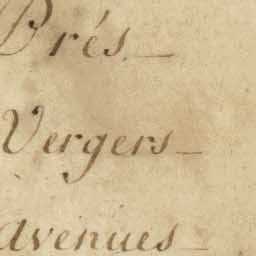 Prés_
Vergers_
avenues_